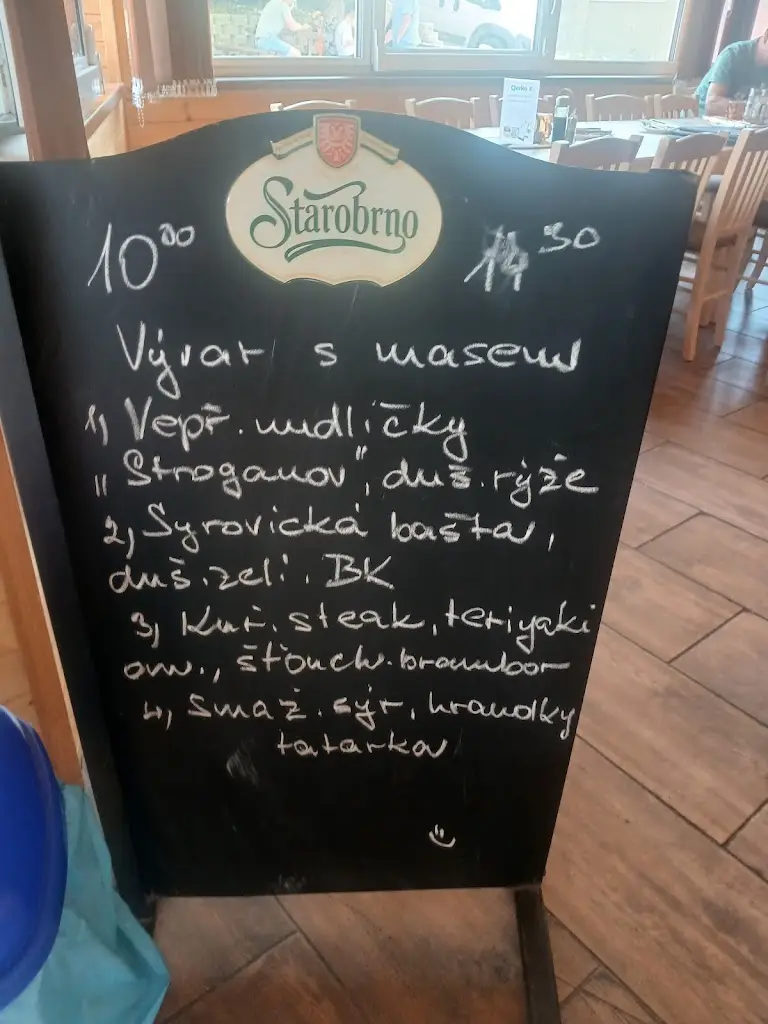 Starobrno
10⁰⁰ 14³⁰
Vývar s masem
1, Vepř. nudličky
"Stroganov", duš. rýže
2, Syrovická bašta,
duš. zelí. BK
3, Kuř. steak, teriyaki
om., šťouch. brambor
4, Smaž. sýr, hranolky
tatarka